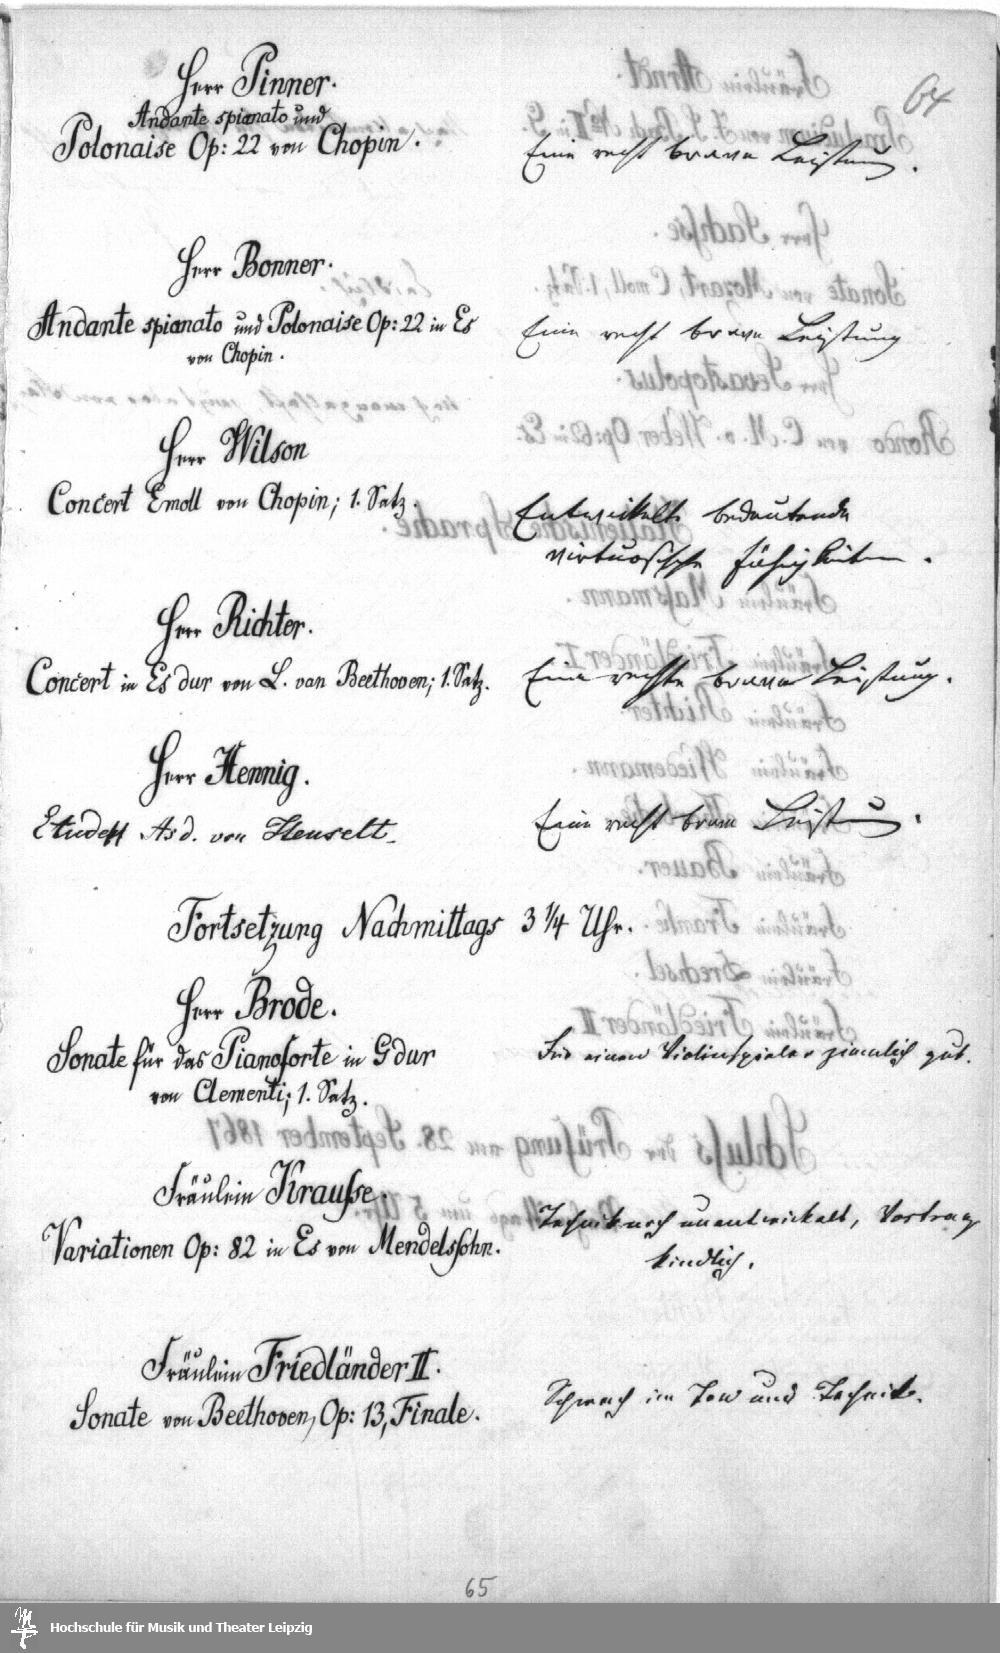 64
Herr Pinner.
Andante spianato und
Polonaise Op: 22 von Chopin.
Eine recht brave Leistung.
Herr Bonner.
Andante spianato und Polonaise Op: 22 in Es
von Chopin.
Eine recht brave Leistung
Herr Wilson
Concert Emoll von Chopin; 1. Satz.
Entwickelte bedeutende
virtuosische Fähigkeiten.
Herr Richter.
Concert in Es dur von L. van Beethoven; 1. Satz.
Eine rechte brave Leistung.
Herr Hennig.
Etuden As d. von Henselt.
Eine recht brave Leistung.
Fortsetzung Nachmittags 3 1/4 Uhr.
Herr Brode.
Sonate für das Pianoforte in G dur
von Clementi; 1. Satz.
Für einen Violinspieler ziemlich gut.
Fräulein Krausse.
Variationen Op: 82 in Es von Mendelssohn.
Technik noch unentwickelt, Vortrag
kindlich.
Fräulein Friedländer II.
Sonate von Beethoven, Op: 13, Finale.
Schwach im Ton und Technik.
65
Hochschule für Musik und Theater Leipzig